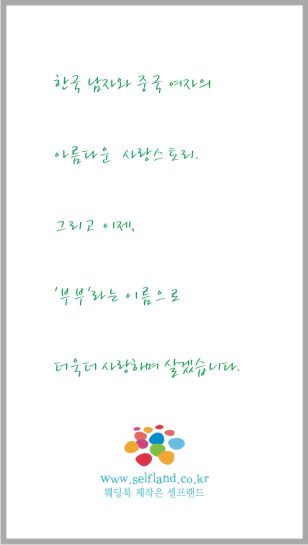 한국 남자와 중국 여자의
아름다운 사랑스토리.
그리고 이제,
'부부'라는 이름으로
더욱더 사랑하며 살겠습니다.
www.selfland.co.kr
웨딩북 제작은 셀프랜드